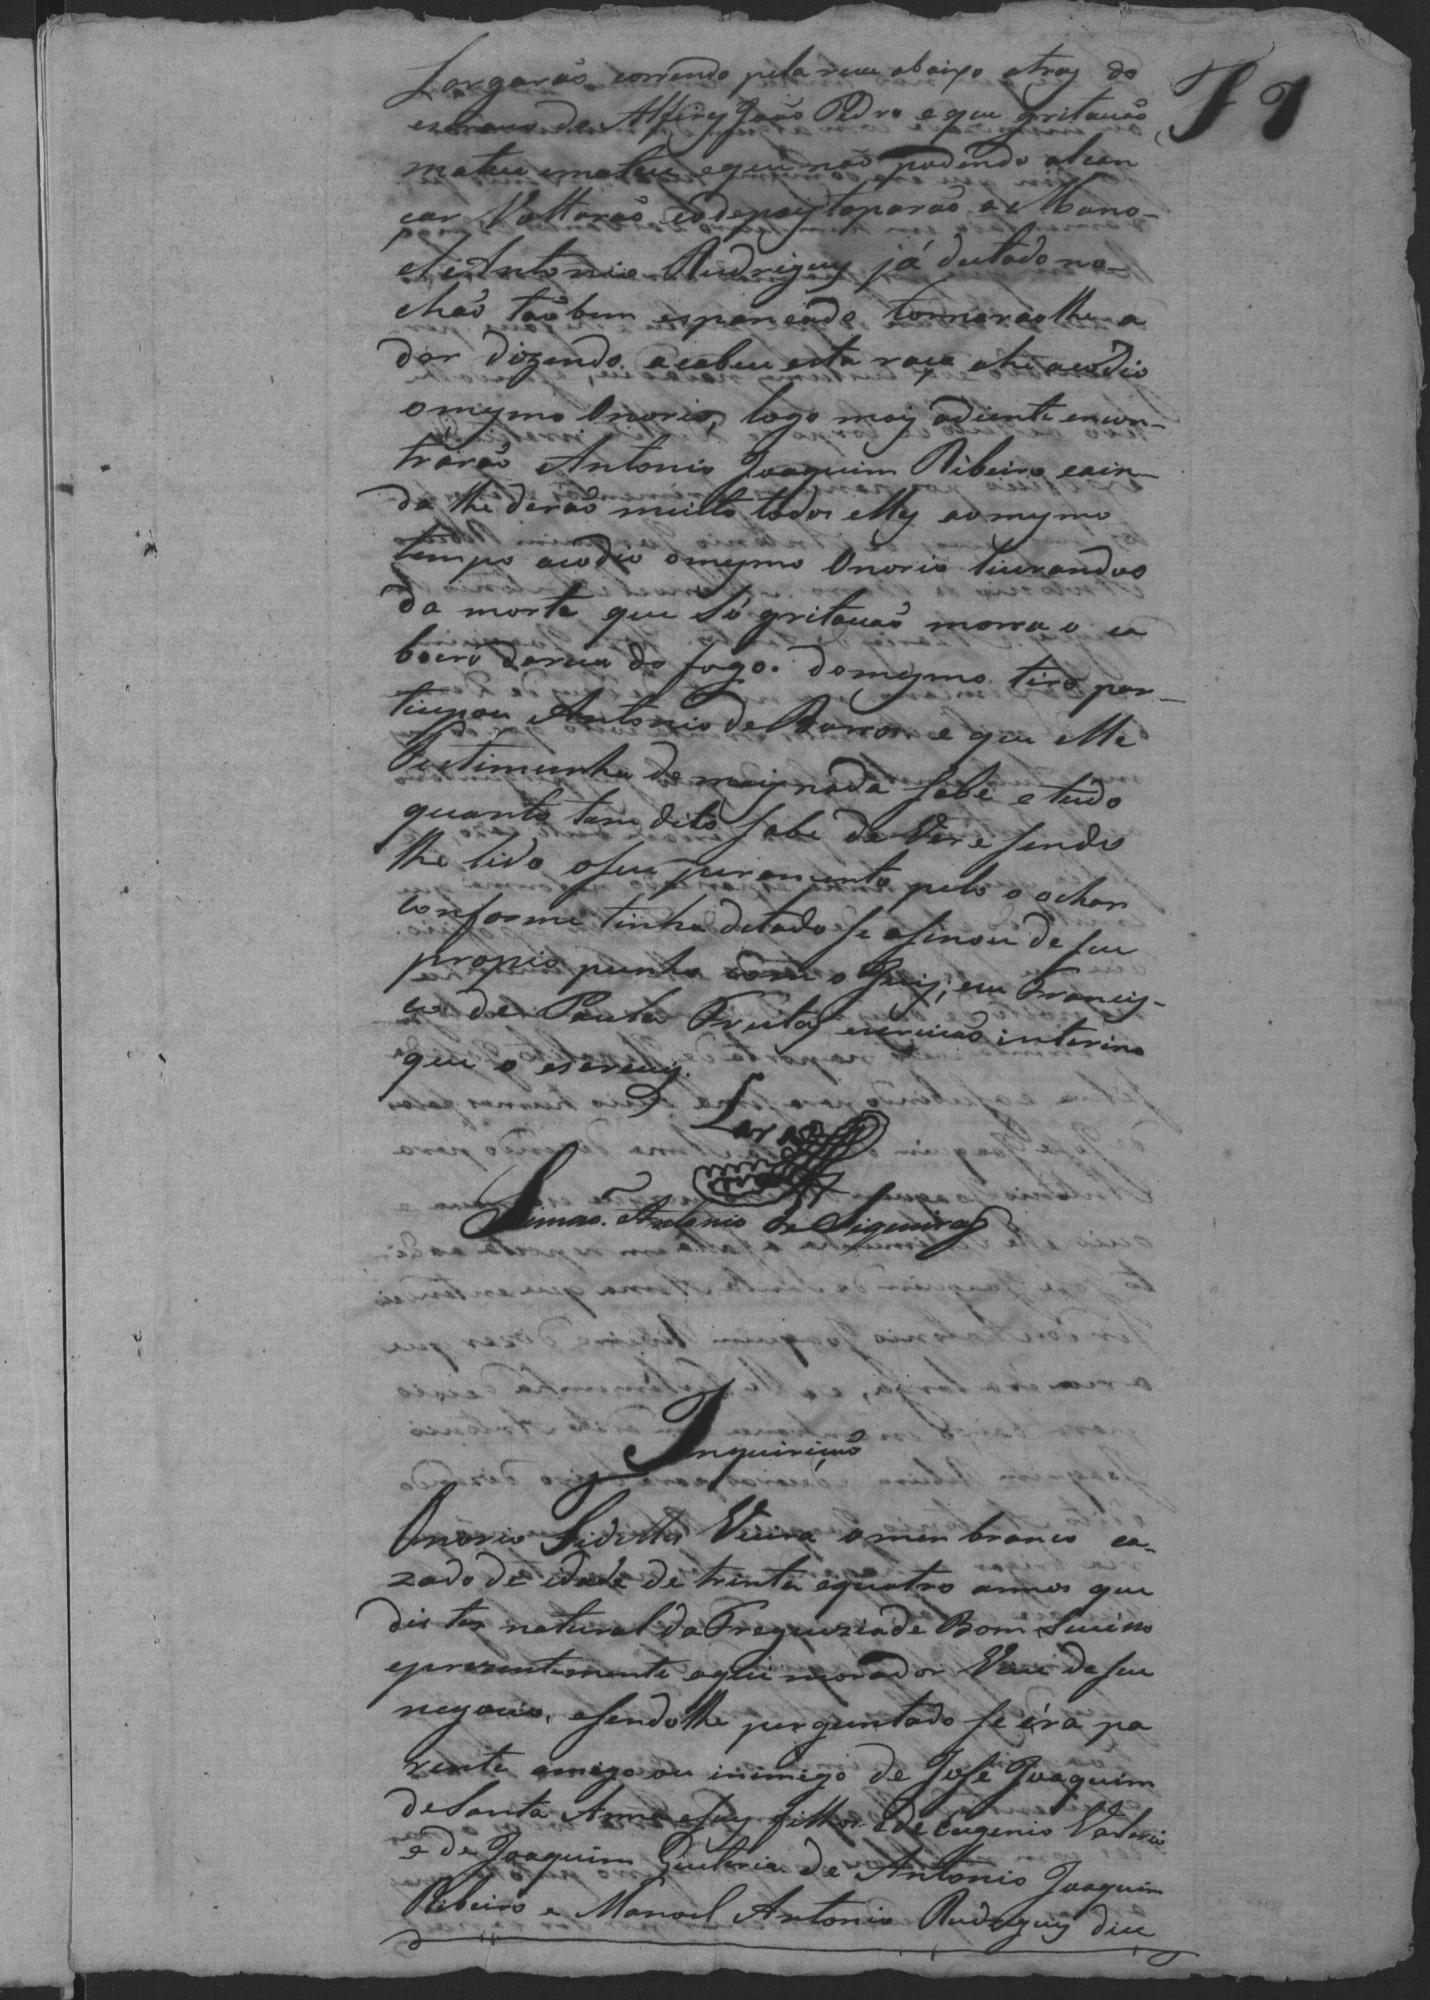 F 7
Largarão correndo pela rua abaixo atraz do
escravo do Alferz João Pedro e que gritavão
mata e mata e que não podendo alcan
çar Voltarão e depoiz toparão a Mano-
el Antonio Rudriguz já deitado no-
chão tão bem espancado tornarão lhe a
dar dizendo acabeu esta raça ahi acodio
o mezmo Onorio, logo maiz adiente encon-
trárão Antonio Joaquim Ribeiro eain-
da lhe derão muito todos ellez ao mezmo
tempo acodio o mezmo Onorio livrandoo
da morte que só gritavão morra o ca
boclo da rua do fogo. do mezmo tiro par-
ticipou Antonio de Barros e que elle
Testimunha de maiz nada sabe e tudo
quanto tem dito sabe de Ver e sendo
lhe lido o seu juramento pelo o achar
conforme tinha ditado se asinou de seu
propio punho com o Juiz; eu Franciz-
co de Paula Freitaz escrivão interino
que o escrevy.
Lara
Simão Antonio de Siqueira
Inquirição
Onorio Fidellis Vieira omem branco ca-
zado de idade de trinta equatro annos que
dis ter natural da Freguezia de Bom Sucésso
eprezentemente aqui morador Vive de seu
negocio, esendo lhe perguntado se éra pa
rente amigo ou inimigo de José Joaquim
de Santa Anna eseuz filhos e de Eugenio Valerio
e de Joaquim Quiteria de Antonio Joaquim
Ribeiro e Manoel Antonio Rudriguz dice